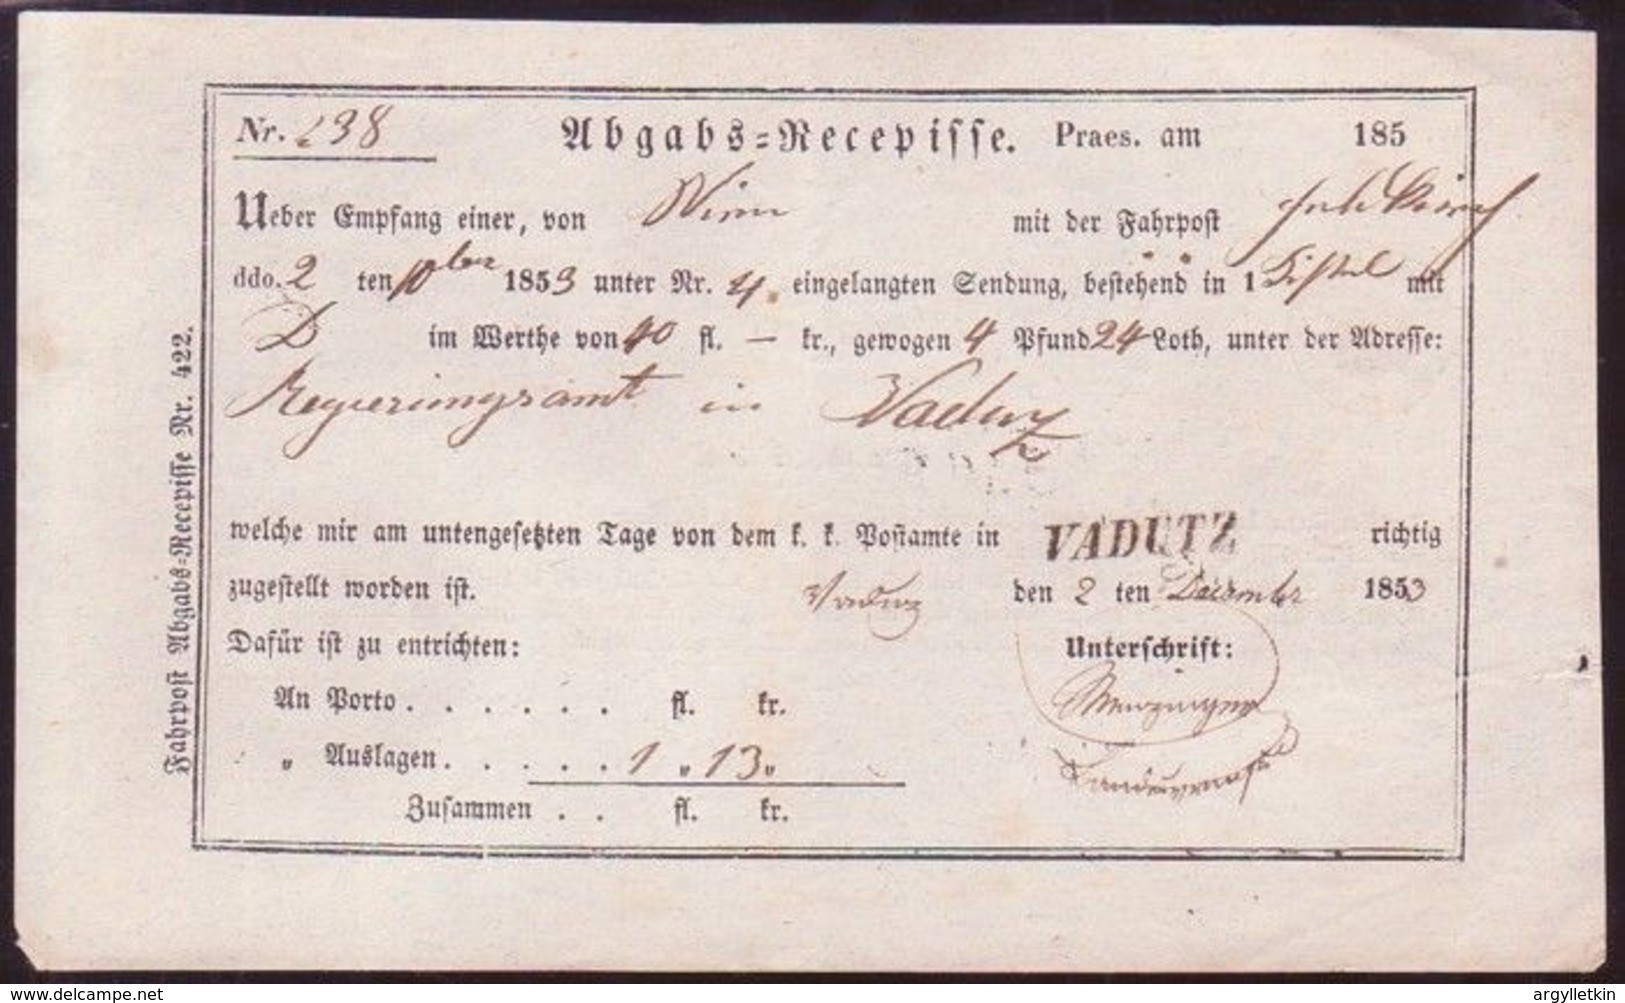 Nr. 238 Abgabs-Recepisse. Praes. am 185
Ueber Empfang einer, von Wien mit der Fahrpost
ddo. 2 ten 10ber 1853 unter Nr. 4. eingelangten Sendung, bestehend in 1 Kistel mit
D im Werthe von 40 fl. — kr., gewogen 4 Pfund 24 Loth, unter der Adresse:
Regierungsamt in Vaduz
welche mir am untengesetzten Tage von dem k. k. Postamte in VADUTZ richtig
zugestellt worden ist. Vaduz den 2 ten Dezember 1853
Dafür ist zu entrichten: Unterschrift:
An Porto . . . . . . fl. kr.
„ Auslagen . . . . . 1 „ 13 „
Zusammen . . fl. kr.
Fahrpost Abgabs-Recepisse Nr. 422.
delcampe.net
argylletkin